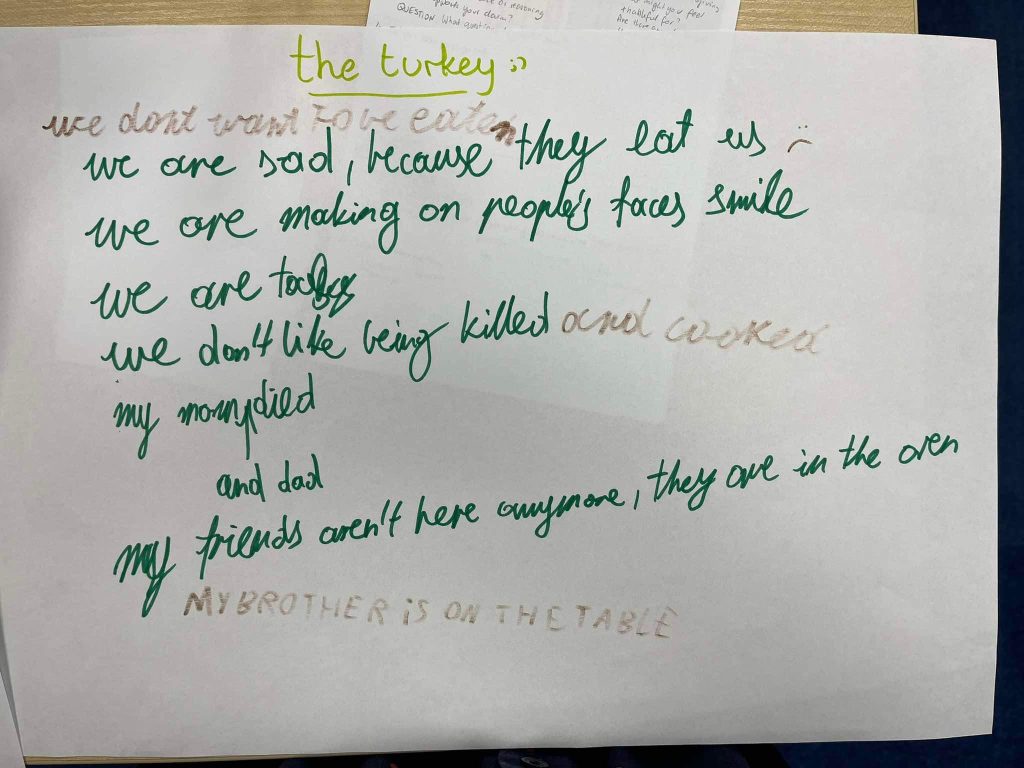 QUESTION: What questions
might you feel
thankful for?
Are there any
the turkey :)
we dont want to be eaten
we are sad, because they eat us :(
we are making on people's faces smile
we are
we don't like being killed and cooked
my mom died
and dad
my friends aren't here anymore, they are in the oven
MY BROTHER iS ON THE TABLE